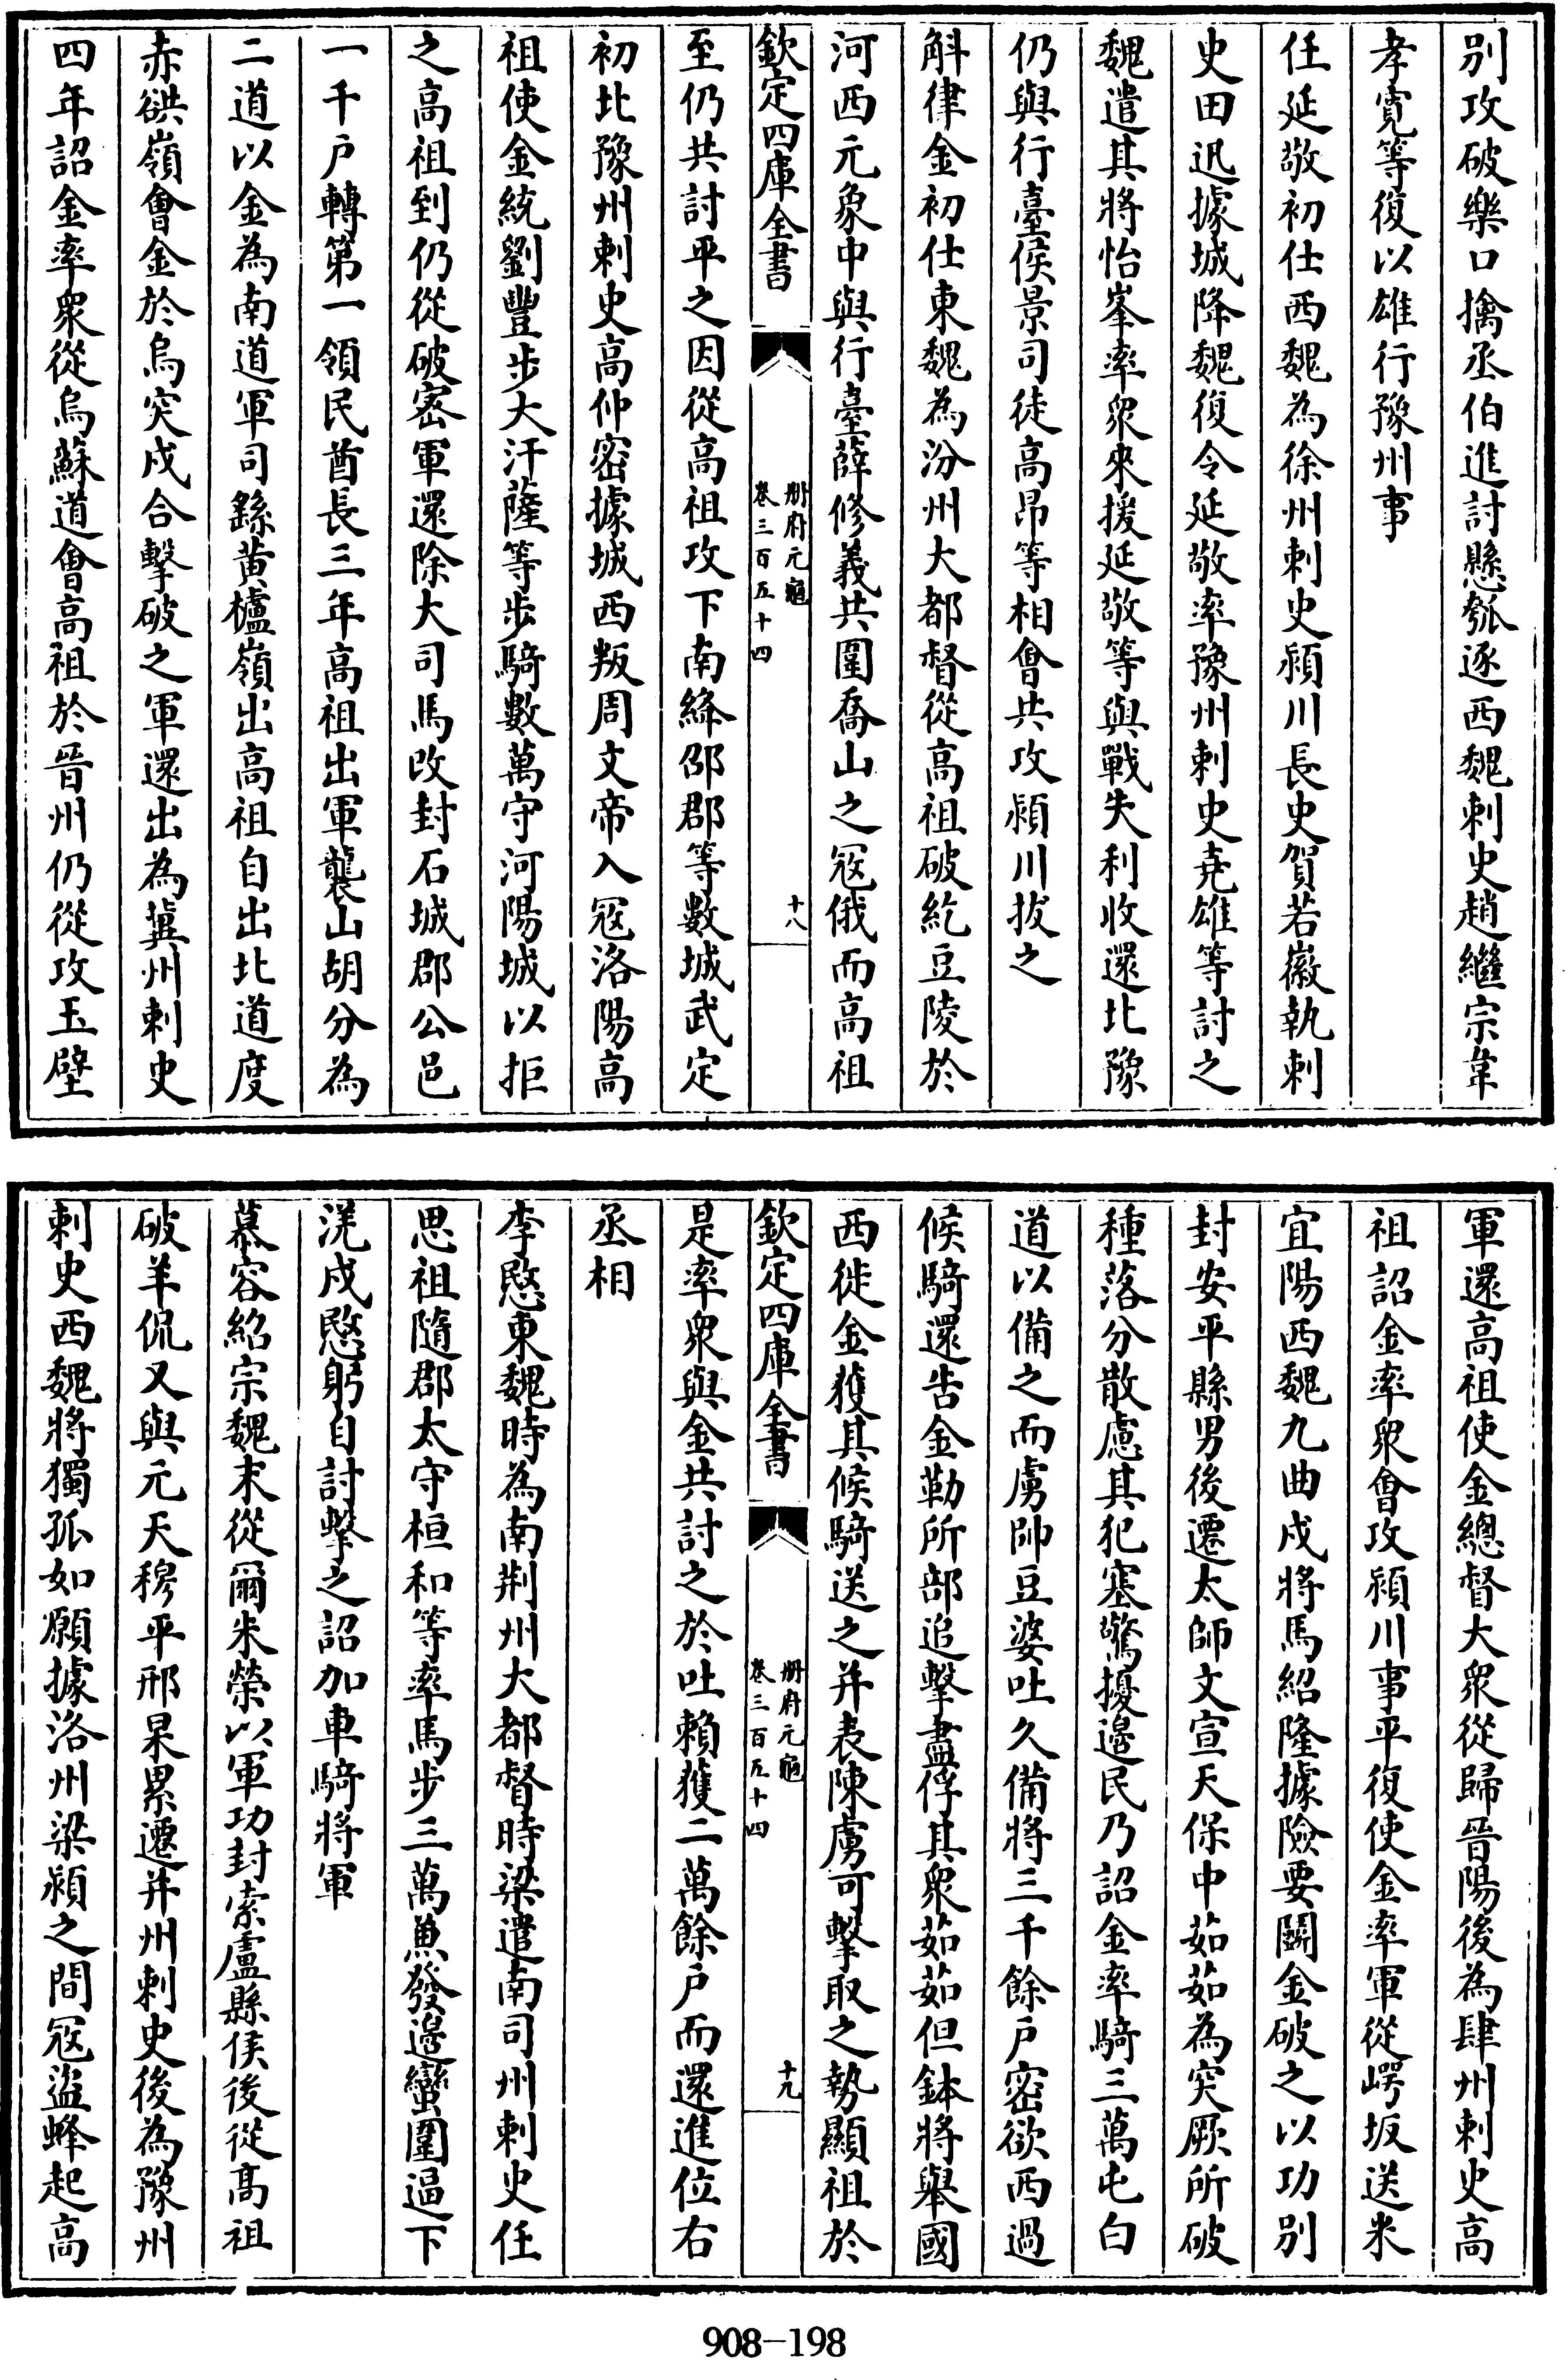 别攻破樂口擒丞伯進討懸瓠逐西魏刺史趙繼宗韋
孝寛等復以雄行豫州事
任延敬初仕西魏為徐州刺史潁川長史賀若徽執刺
史田迅據城降魏復令延敬率豫州刺史堯雄等討之
魏遣其將怡峯率衆來援延敬等與戰失利收還北豫
仍與行臺侯景司徒高昂等相會共攻潁川拔之
斛律金初仕東魏為汾州大都督從高祖破紇豆陵於
河西元象中與行臺薛修義共圍喬山之冦俄而高祖
欽定四庫全書
册府元龜
卷三百五十四
十八
至仍共討平之因從高祖攻下南絳邵郡等數城武定
初北豫州刺史高仲密據城西叛周文帝入冦洛陽高
祖使金統劉豐步大汗薩等步騎數萬守河陽城以拒
之高祖到仍從破密軍還除大司馬改封石城郡公邑
一千户轉第一領民酋長三年高祖出軍襲山胡分為
二道以金為南道軍司繇黄櫨嶺出高祖自出北道度
赤谼嶺會金於烏突戍合擊破之軍還出為冀州刺史
四年詔金率衆從烏蘇道會高祖於晉州仍從攻玉壁
軍還高祖使金總督大衆從歸晉陽後為肆州刺史高
祖詔金率衆會攻潁川事平復使金率軍從崿坂送米
宜陽西魏九曲戍將馬紹隆據險要鬭金破之以功别
封安平縣男後遷太師文宣天保中茹茹為突厥所破
種落分散慮其犯塞驚擾邉民乃詔金率騎三萬屯白
道以備之而虜帥豆婆吐久備將三千餘户密欲西過
候騎還告金勒所部追擊盡俘其衆茹茹但鉢將舉國
西徙金獲其候騎送之并表陳虜可擊取之勢顯祖於
欽定四庫全書
册府元龜
卷三百五十四
十九
是率衆與金共討之於吐賴獲二萬餘户而還進位右
丞相
李愍東魏時為南荆州大都督時梁遣南司州刺史任
思祖隨郡太守桓和等率馬步三萬兼發邉蠻圍逼下
溠戍愍躬自討擊之詔加車騎將軍
慕容紹宗魏末從爾朱榮以軍功封索盧縣侯後從髙祖
破羊侃又與元天穆平邢杲累遷并州刺史後為豫州
刺史西魏將獨孤如願據洛州梁潁之間冦盜蜂起高
908-198